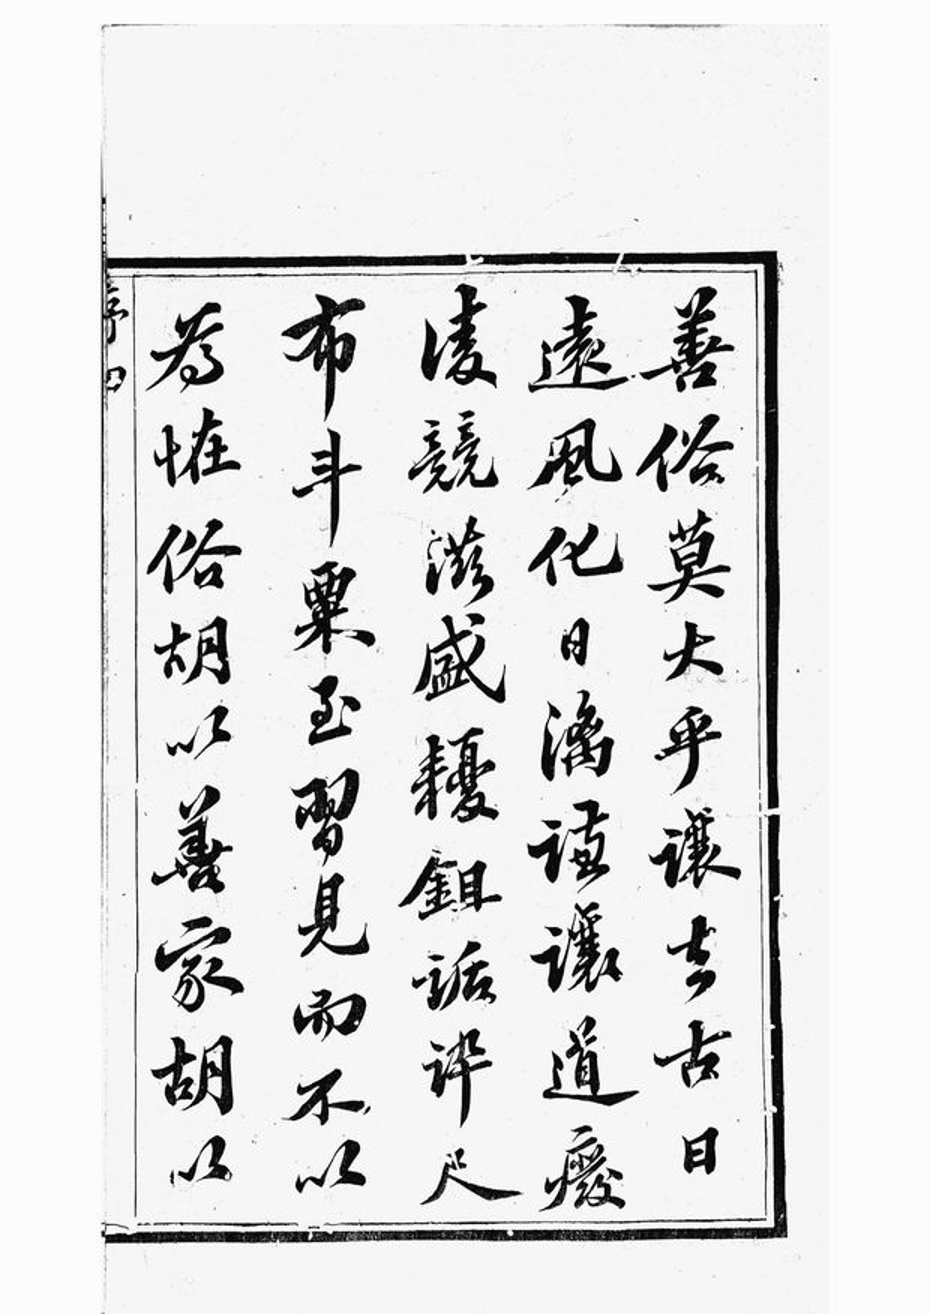 善俗莫大乎讓去古日
遠風化日漓謙讓道廢
淩競滋盛耰鉏詬誶尺
布斗粟至習見而不以
為恠俗胡以善家胡以
序 四